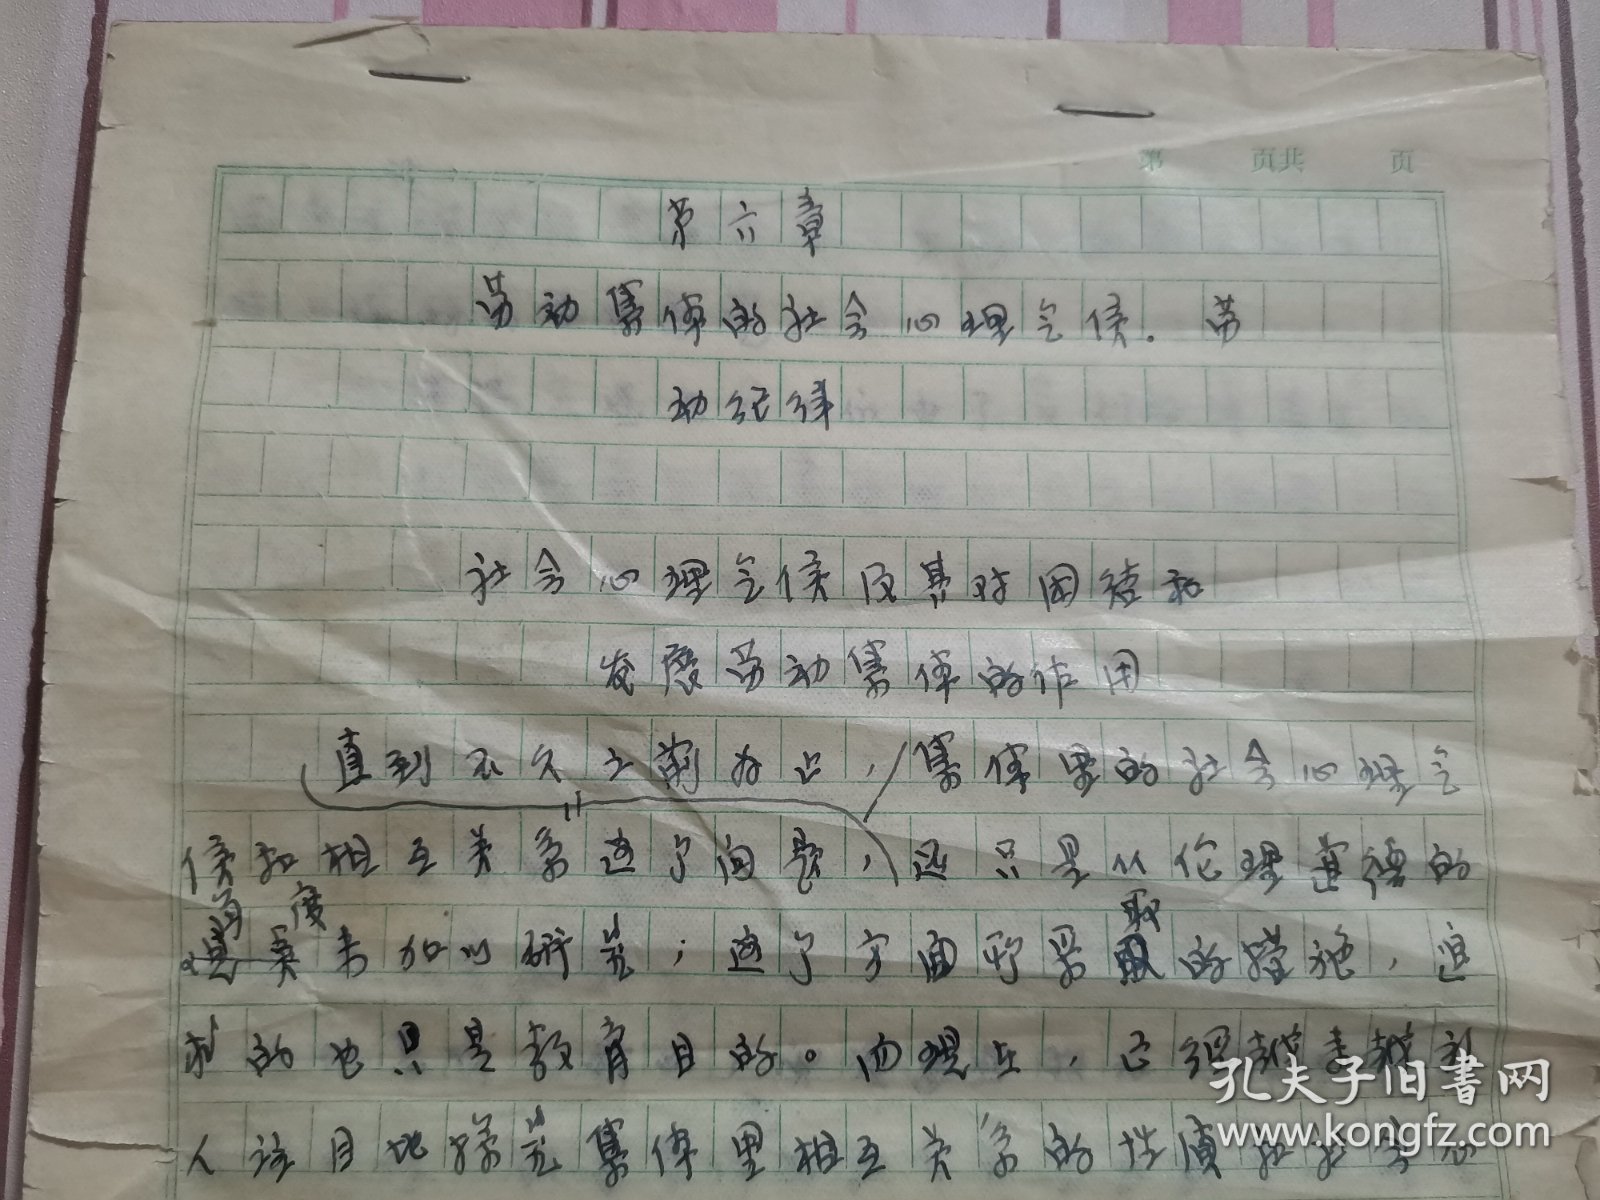 页 共页 第
第六章
劳动集体的社会心理气候。劳
动纪律
社会心理气候及其对团结和
发展劳动集体的作用
直到不久之前为止，集体里的社会心理气
候和相互关系这个问题，还只是从伦理道德的
角度
取
来加以研究；这个方面所采的措施，追
求的也只是教育目的。而现在，已经越来越
人注目地探究集体里相互关系的性质和社会
孔夫子旧书网
www.kongfz.com